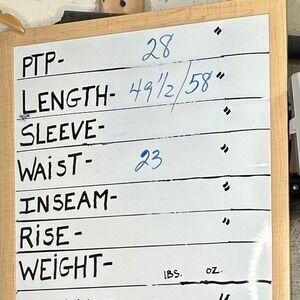 PTP- 28 "
LENGTH- 49 1/2 / 58 "
SLEEVE- "
WAIST- 23 "
INSEAM- "
RISE- "
WEIGHT- LBS. OZ.